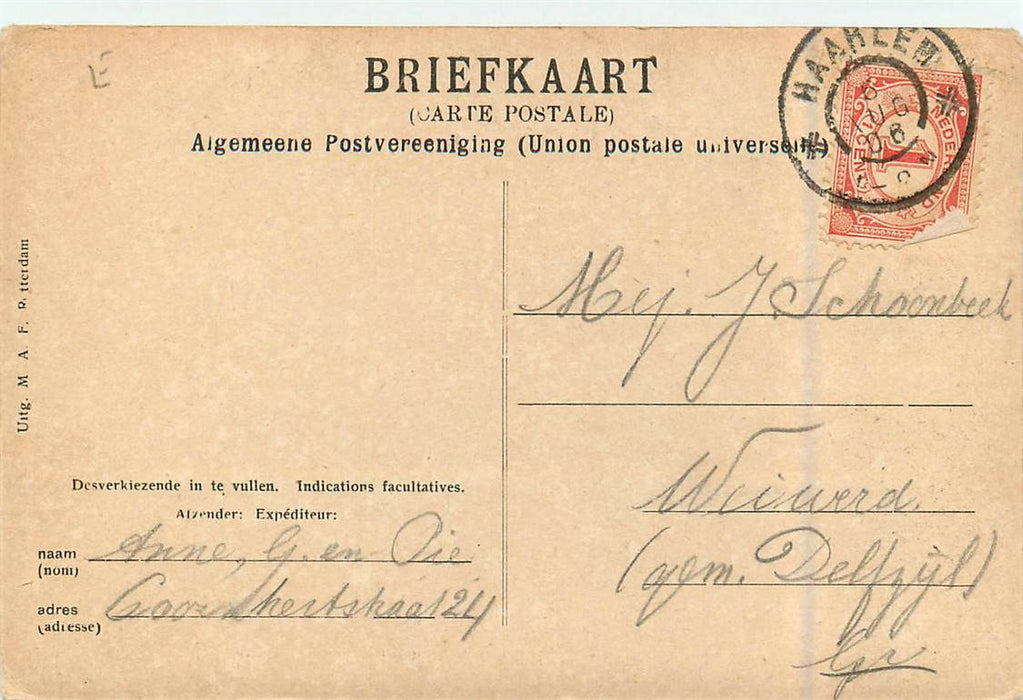 E
BRIEFKAART
(CARTE POSTALE)
Algemeene Postvereeniging (Union postale universelle)
HAARLEM
6 AUG 06
NEDERLAND
1
Uitg. M A F. Rotterdam
Mej. J Schoonbeek
Weiwerd
(gem. Delfzijl)
Gr
Desverkiezende in te vullen. Indications facultatives.
Afzender: Expéditeur:
naam Anne, G. en Pie
(nom)
adres Coornhertstraat 24
(adresse)